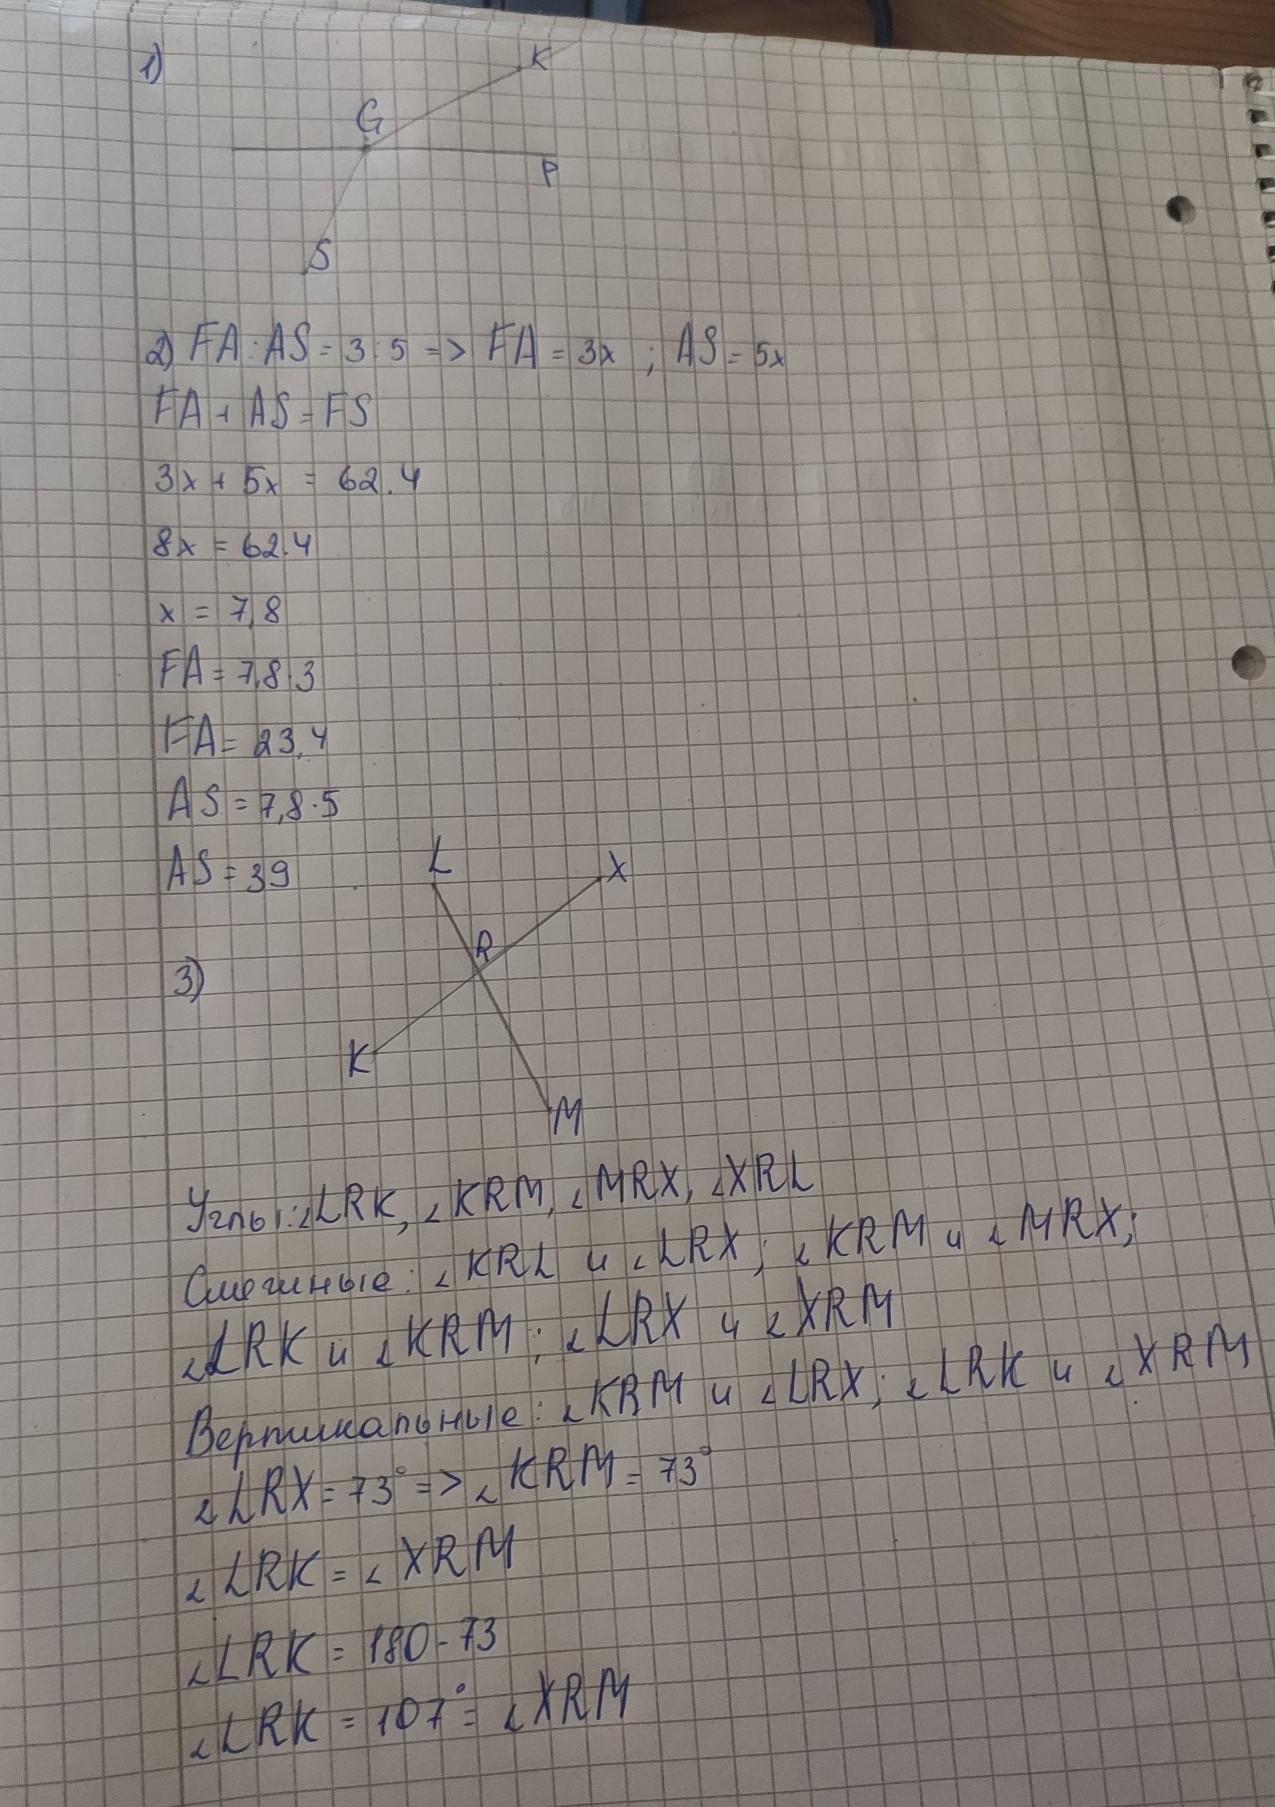 1)
K
G
P
S
2) FA : AS = 3 : 5 => FA = 3x ; AS = 5x
FA + AS = FS
3x + 5x = 62.4
8x = 62.4
x = 7,8
FA = 7,8·3
FA = 23,4
AS = 7,8·5
AS = 39
L
X
R
3)
K
M
Углы: ∠LRK, ∠KRM, ∠MRX, ∠XRL
Смежные: ∠KRL и ∠LRX; ∠KRM и ∠MRX;
∠LRK и ∠KRM; ∠LRX и ∠XRM
Вертикальные: ∠KRM и ∠LRX; ∠LRK и ∠XRM
∠LRX = 73° => ∠KRM = 73°
∠LRK = ∠XRM
∠LRK = 180 - 73
∠LRK = 107° = ∠XRM